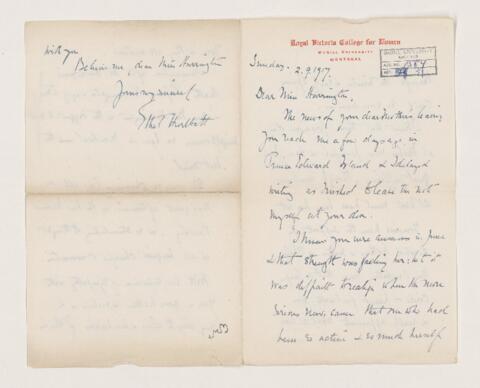 Royal Victoria College for Women
McGill University
Montreal
Sunday. 2.9.1917.
Dear Miss Harrington,
The news of your dear Mother's leaving
you reach me a few days ago in
Prince Edward Island & I delayed
writing as I wished to leave this not
myself at your door.
I knew you were anxious in June
& that strength was failing her; but it
was difficult to realize when the more
serious news came that one who had
been so active & so much herself
with you
Believe me, dear Miss Harrington
Yours very sincerely
Ethel Hurlbatt